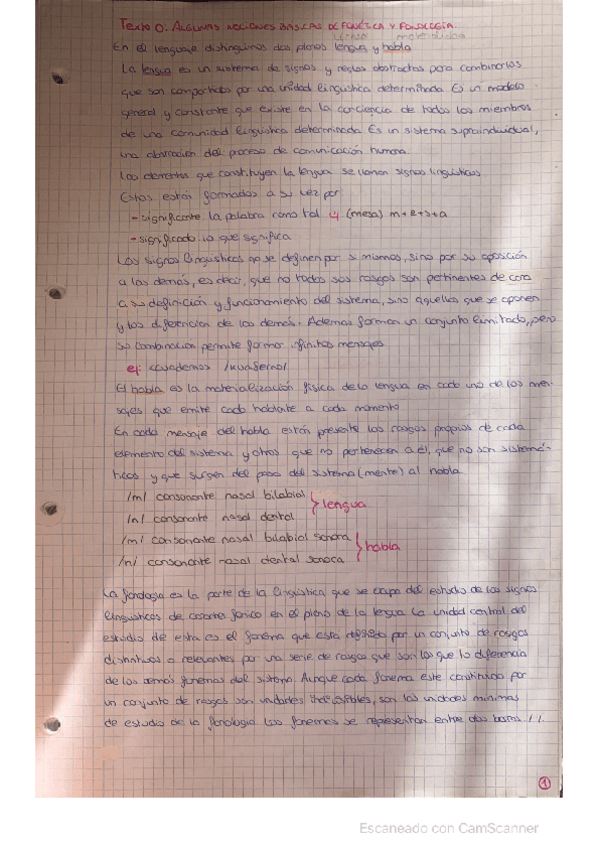 Texto 0: ALGUNAS NOCIONES BÁSICAS DE FONÉTICA Y FONOLOGÍA.
En el lenguaje distinguimos dos planos lengua y habla
La lengua es un sistema de signos y reglas abstractas para combinarlos
que son compartidos por una unidad lingüística determinada. Es un modelo
general y constante que existe en la conciencia de todos los miembros
de una comunidad lingüística determinada. Es un sistema supraindividual,
una abstracción del proceso de comunicación humana.
Los elementos que constituyen la lengua se llaman signos lingüísticos.
Estos están formados a su vez por:
- significante: la palabra como tal ↳ (mesa) m+e+s+a
- significado: lo que significa
Los signos lingüísticos no se definen por si mismos, sino por su oposición
a los demás, es decir, que no todos sus rasgos son pertinentes de cara
a su definición y funcionamiento del sistema, sino aquellos que se oponen
y los diferencian de los demás. Además forman un conjunto limitado, pero
su combinación permite formar infinitos mensajes
ej: cuadernos /
El habla es la materialización física de la lengua en cada uno de los men-
sajes que emite cada hablante a cada momento.
En cada mensaje del habla están presente los rasgos propios de cada
elemento del sistema y otros que no pertenecen a él, que no son sistemá-
ticos y que surgen del paso del sistema (mente) al habla.
/m/ consonante nasal bilabial
/n/ consonante nasal dental } lengua
/m/ consonante nasal bilabial sonora
/n/ consonante nasal dental sonora } habla
La fonología es la parte de la lingüística que se ocupa del estudio de los signos
lingüísticos de carácter fónico en el plano de la lengua. La unidad central del
estudio de esta es el fonema que está por un conjunto de rasgos
distintivos o relevantes por una serie de rasgos que son los que lo diferencia
de los demás fonemas del sistema. Aunque cada fonema este constituido por
un conjunto de rasgos son unidades indivisibles, son las unidades mínimas
de estudio de la fonología. Los fonemas se representan entre dos barras / /.
1
Escaneado con CamScanner